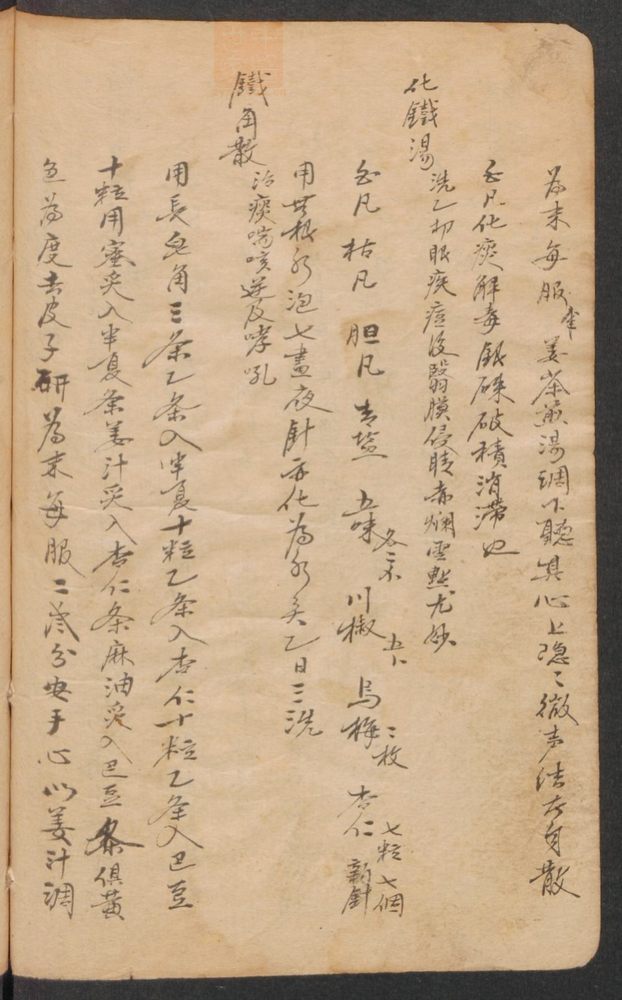 為末每服半 姜茶煎湯調下聽其心上隐〻微声結者自散
白凡化痰解毒 銀硃破積消滞也
化鐵湯 洗乙切眼疾痘後翳膜侵睛赤烂雲點尤妙
白凡 枯凡 胆凡 青塩 五味 各三分 川椒 五个 烏梅 二枚 杏仁 七粒 新針 七個
用井根水泡七晝夜針亦化為水矣乙日三洗
鐵角散 治痰喘咳逆及哮吼
用長皂角三条乙条入半夏十粒乙条入杏仁十粒乙条入巴豆
十粒用蜜炙入半夏条姜汁炙入杏仁条麻油炙入巴豆条俱黄
色為度去皮子研為末每服二三分安手心以姜汁調